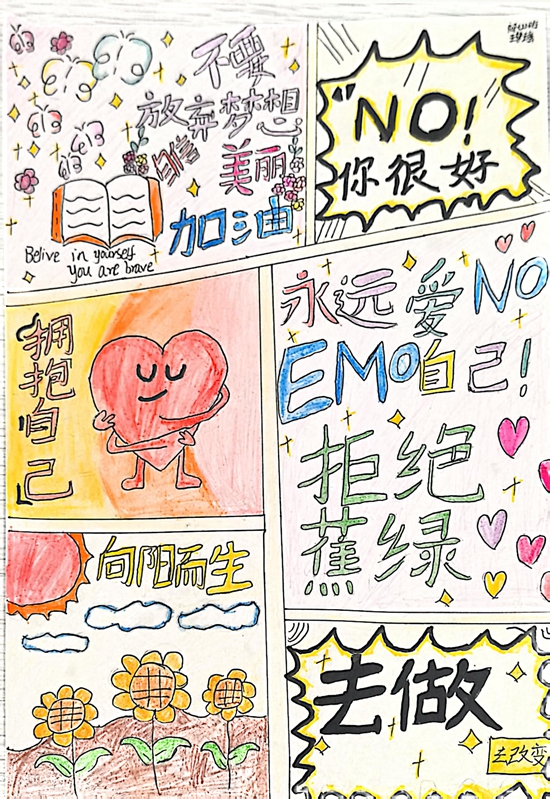 不要
放弃梦想
自信
美丽
加油
Belive in yourself
you are brave
"NO!
你很好
拥抱自己
永远爱NO
EMO自己!
拒绝
蕉绿
向阳而生
去做
去改变